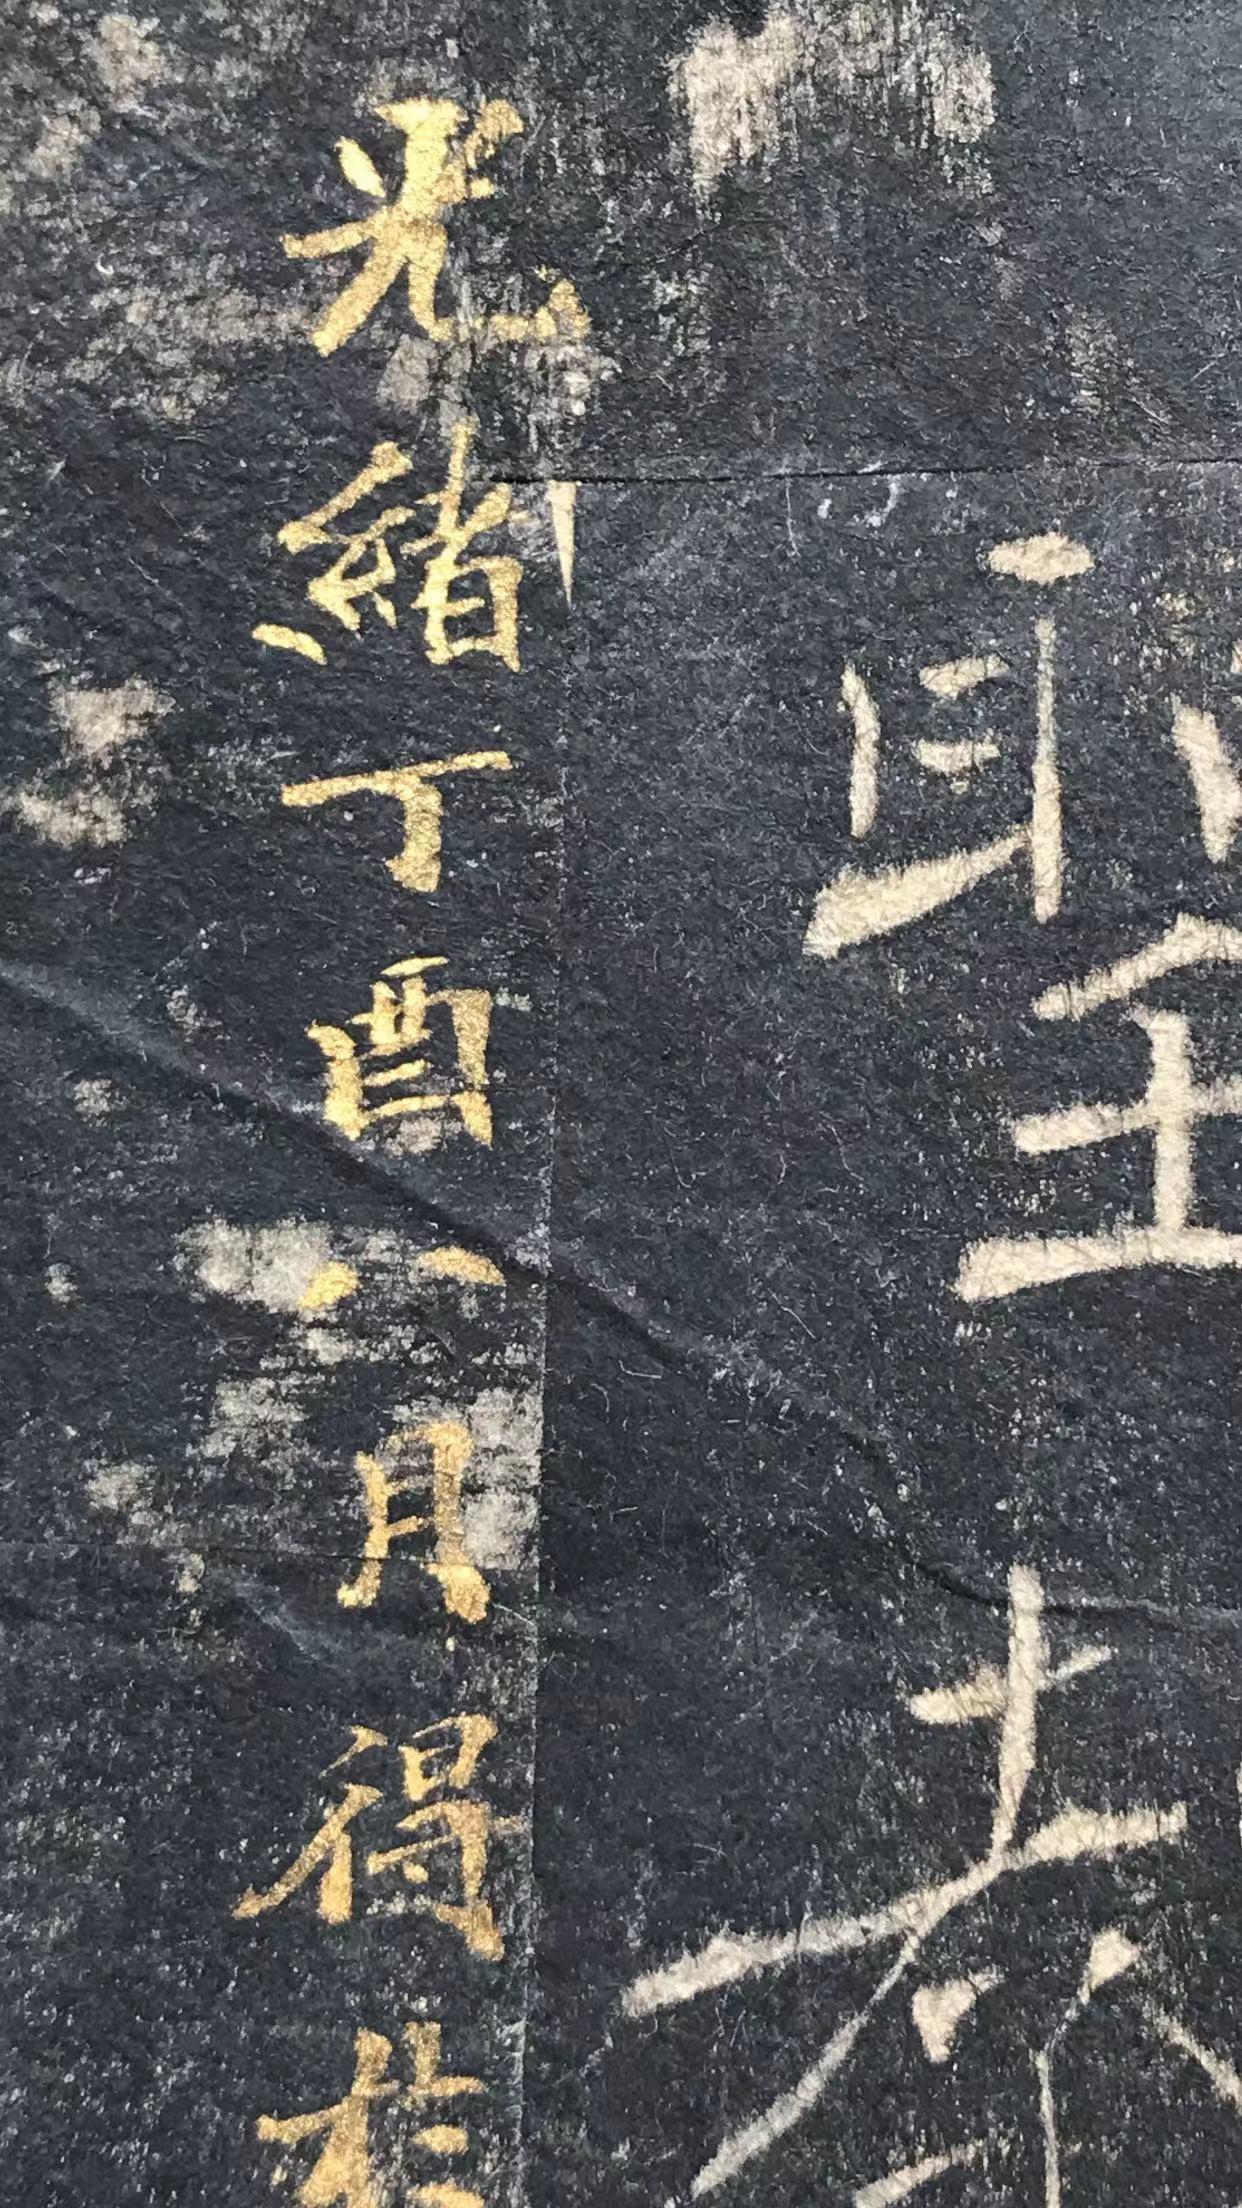 聖
光緒丁酉八月得於